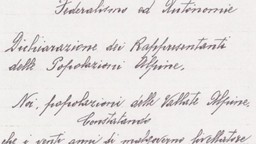 Federalismo ed Autonomie
Dichiarazione dei Rappresentanti
delle Popolazioni Alpine.
Noi, popolazioni delle Vallate Alpine.
Constatando
che i venti anni di malgoverno livellatore